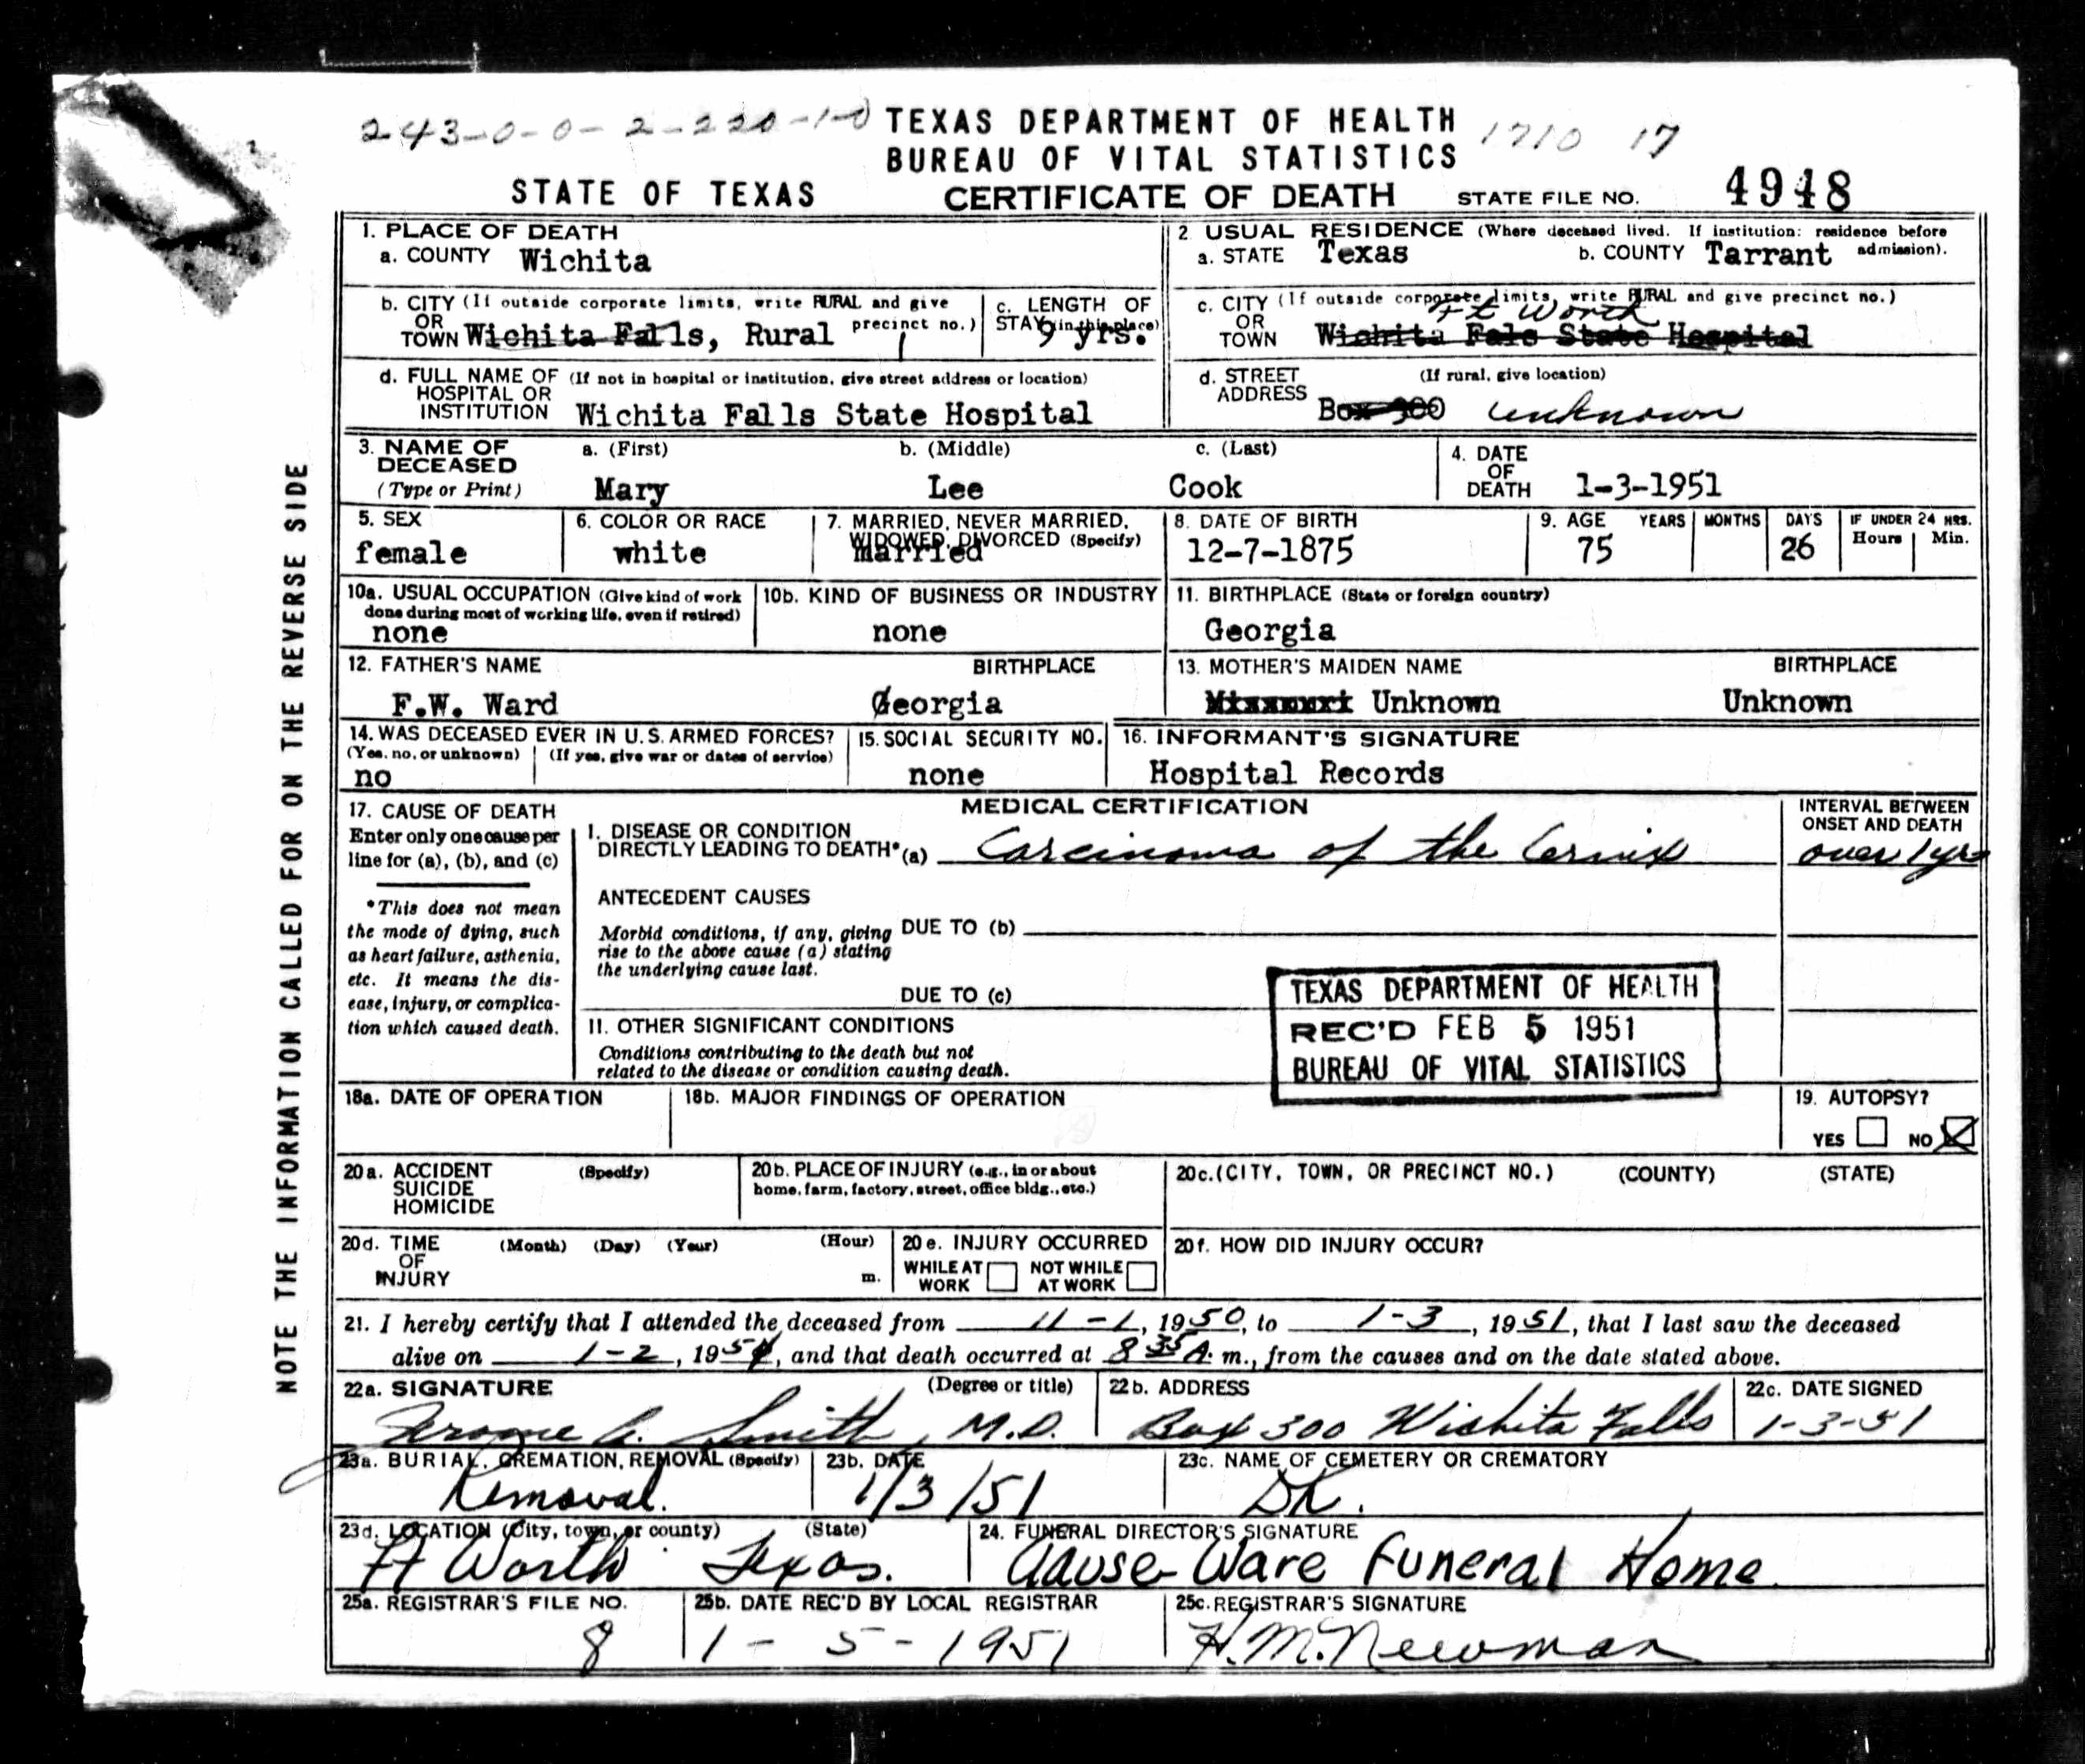 243-0-0-2-220-1-0
TEXAS DEPARTMENT OF HEALTH
1710 17
BUREAU OF VITAL STATISTICS
STATE OF TEXAS
CERTIFICATE OF DEATH
STATE FILE NO. 4948
NOTE THE INFORMATION CALLED FOR ON THE REVERSE SIDE
1. PLACE OF DEATH
a. COUNTY Wichita
2. USUAL RESIDENCE (Where deceased lived. If institution: residence before admission).
a. STATE Texas b. COUNTY Tarrant
b. CITY (If outside corporate limits, write RURAL and give precinct no.)
OR TOWN Wichita Falls, Rural 1
c. LENGTH OF STAY (in this place) 9 yrs.
c. CITY (If outside corporate limits, write RURAL and give precinct no.)
Ft Worth
OR TOWN Wichita Fals State Hospital
d. FULL NAME OF HOSPITAL OR INSTITUTION (If not in hospital or institution, give street address or location)
Wichita Falls State Hospital
d. STREET ADDRESS (If rural, give location)
Box 300 unknown
3. NAME OF DECEASED (Type or Print)
a. (First) b. (Middle) c. (Last)
Mary Lee Cook
4. DATE OF DEATH 1-3-1951
5. SEX
female
6. COLOR OR RACE
white
7. MARRIED, NEVER MARRIED, WIDOWED, DIVORCED (Specify)
married
8. DATE OF BIRTH
12-7-1875
9. AGE YEARS MONTHS DAYS IF UNDER 24 HRS. Hours Min.
75 26
10a. USUAL OCCUPATION (Give kind of work done during most of working life, even if retired)
none
10b. KIND OF BUSINESS OR INDUSTRY
none
11. BIRTHPLACE (State or foreign country)
Georgia
12. FATHER'S NAME BIRTHPLACE
F.W. Ward Georgia
13. MOTHER'S MAIDEN NAME BIRTHPLACE
Missouri Unknown Unknown
14. WAS DECEASED EVER IN U.S. ARMED FORCES?
(Yes, no, or unknown) (If yes, give war or dates of service)
no
15. SOCIAL SECURITY NO.
none
16. INFORMANT'S SIGNATURE
Hospital Records
17. CAUSE OF DEATH
Enter only one cause per
line for (a), (b), and (c)
*This does not mean
the mode of dying, such
as heart failure, asthenia,
etc. It means the dis-
ease, injury, or complica-
tion which caused death.
MEDICAL CERTIFICATION
INTERVAL BETWEEN ONSET AND DEATH
I. DISEASE OR CONDITION
DIRECTLY LEADING TO DEATH* (a) Carcinoma of the Cervix over 1 yr
ANTECEDENT CAUSES
Morbid conditions, if any, giving
rise to the above cause (a) stating
the underlying cause last.
DUE TO (b)
DUE TO (c)
II. OTHER SIGNIFICANT CONDITIONS
Conditions contributing to the death but not
related to the disease or condition causing death.
TEXAS DEPARTMENT OF HEALTH
REC'D FEB 5 1951
BUREAU OF VITAL STATISTICS
18a. DATE OF OPERATION
18b. MAJOR FINDINGS OF OPERATION
19. AUTOPSY?
YES NO
20a. ACCIDENT SUICIDE HOMICIDE (Specify)
20b. PLACE OF INJURY (e.g., in or about home, farm, factory, street, office bldg., etc.)
20c. (CITY, TOWN, OR PRECINCT NO.) (COUNTY) (STATE)
20d. TIME OF INJURY (Month) (Day) (Year) (Hour) m.
20e. INJURY OCCURRED
WHILE AT WORK NOT WHILE AT WORK
20f. HOW DID INJURY OCCUR?
21. I hereby certify that I attended the deceased from 11-1, 1950, to 1-3, 1951, that I last saw the deceased
alive on 1-2, 1951, and that death occurred at 8 35 A. m., from the causes and on the date stated above.
22a. SIGNATURE (Degree or title)
Jerome A. Smith, M.D.
22b. ADDRESS
Box 300 Wichita Falls
22c. DATE SIGNED
1-3-51
23a. BURIAL, CREMATION, REMOVAL (Specify)
Removal.
23b. DATE
1/3/51
23c. NAME OF CEMETERY OR CREMATORY
DK.
23d. LOCATION (City, town, or county) (State)
Ft Worth Texas.
24. FUNERAL DIRECTOR'S SIGNATURE
Gause-Ware Funeral Home
25a. REGISTRAR'S FILE NO.
8
25b. DATE REC'D BY LOCAL REGISTRAR
1-5-1951
25c. REGISTRAR'S SIGNATURE
H.M. Newman